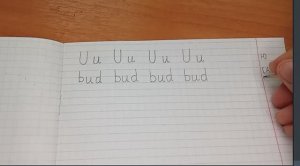 Uu Uu Uu Uu
bud bud bud bud